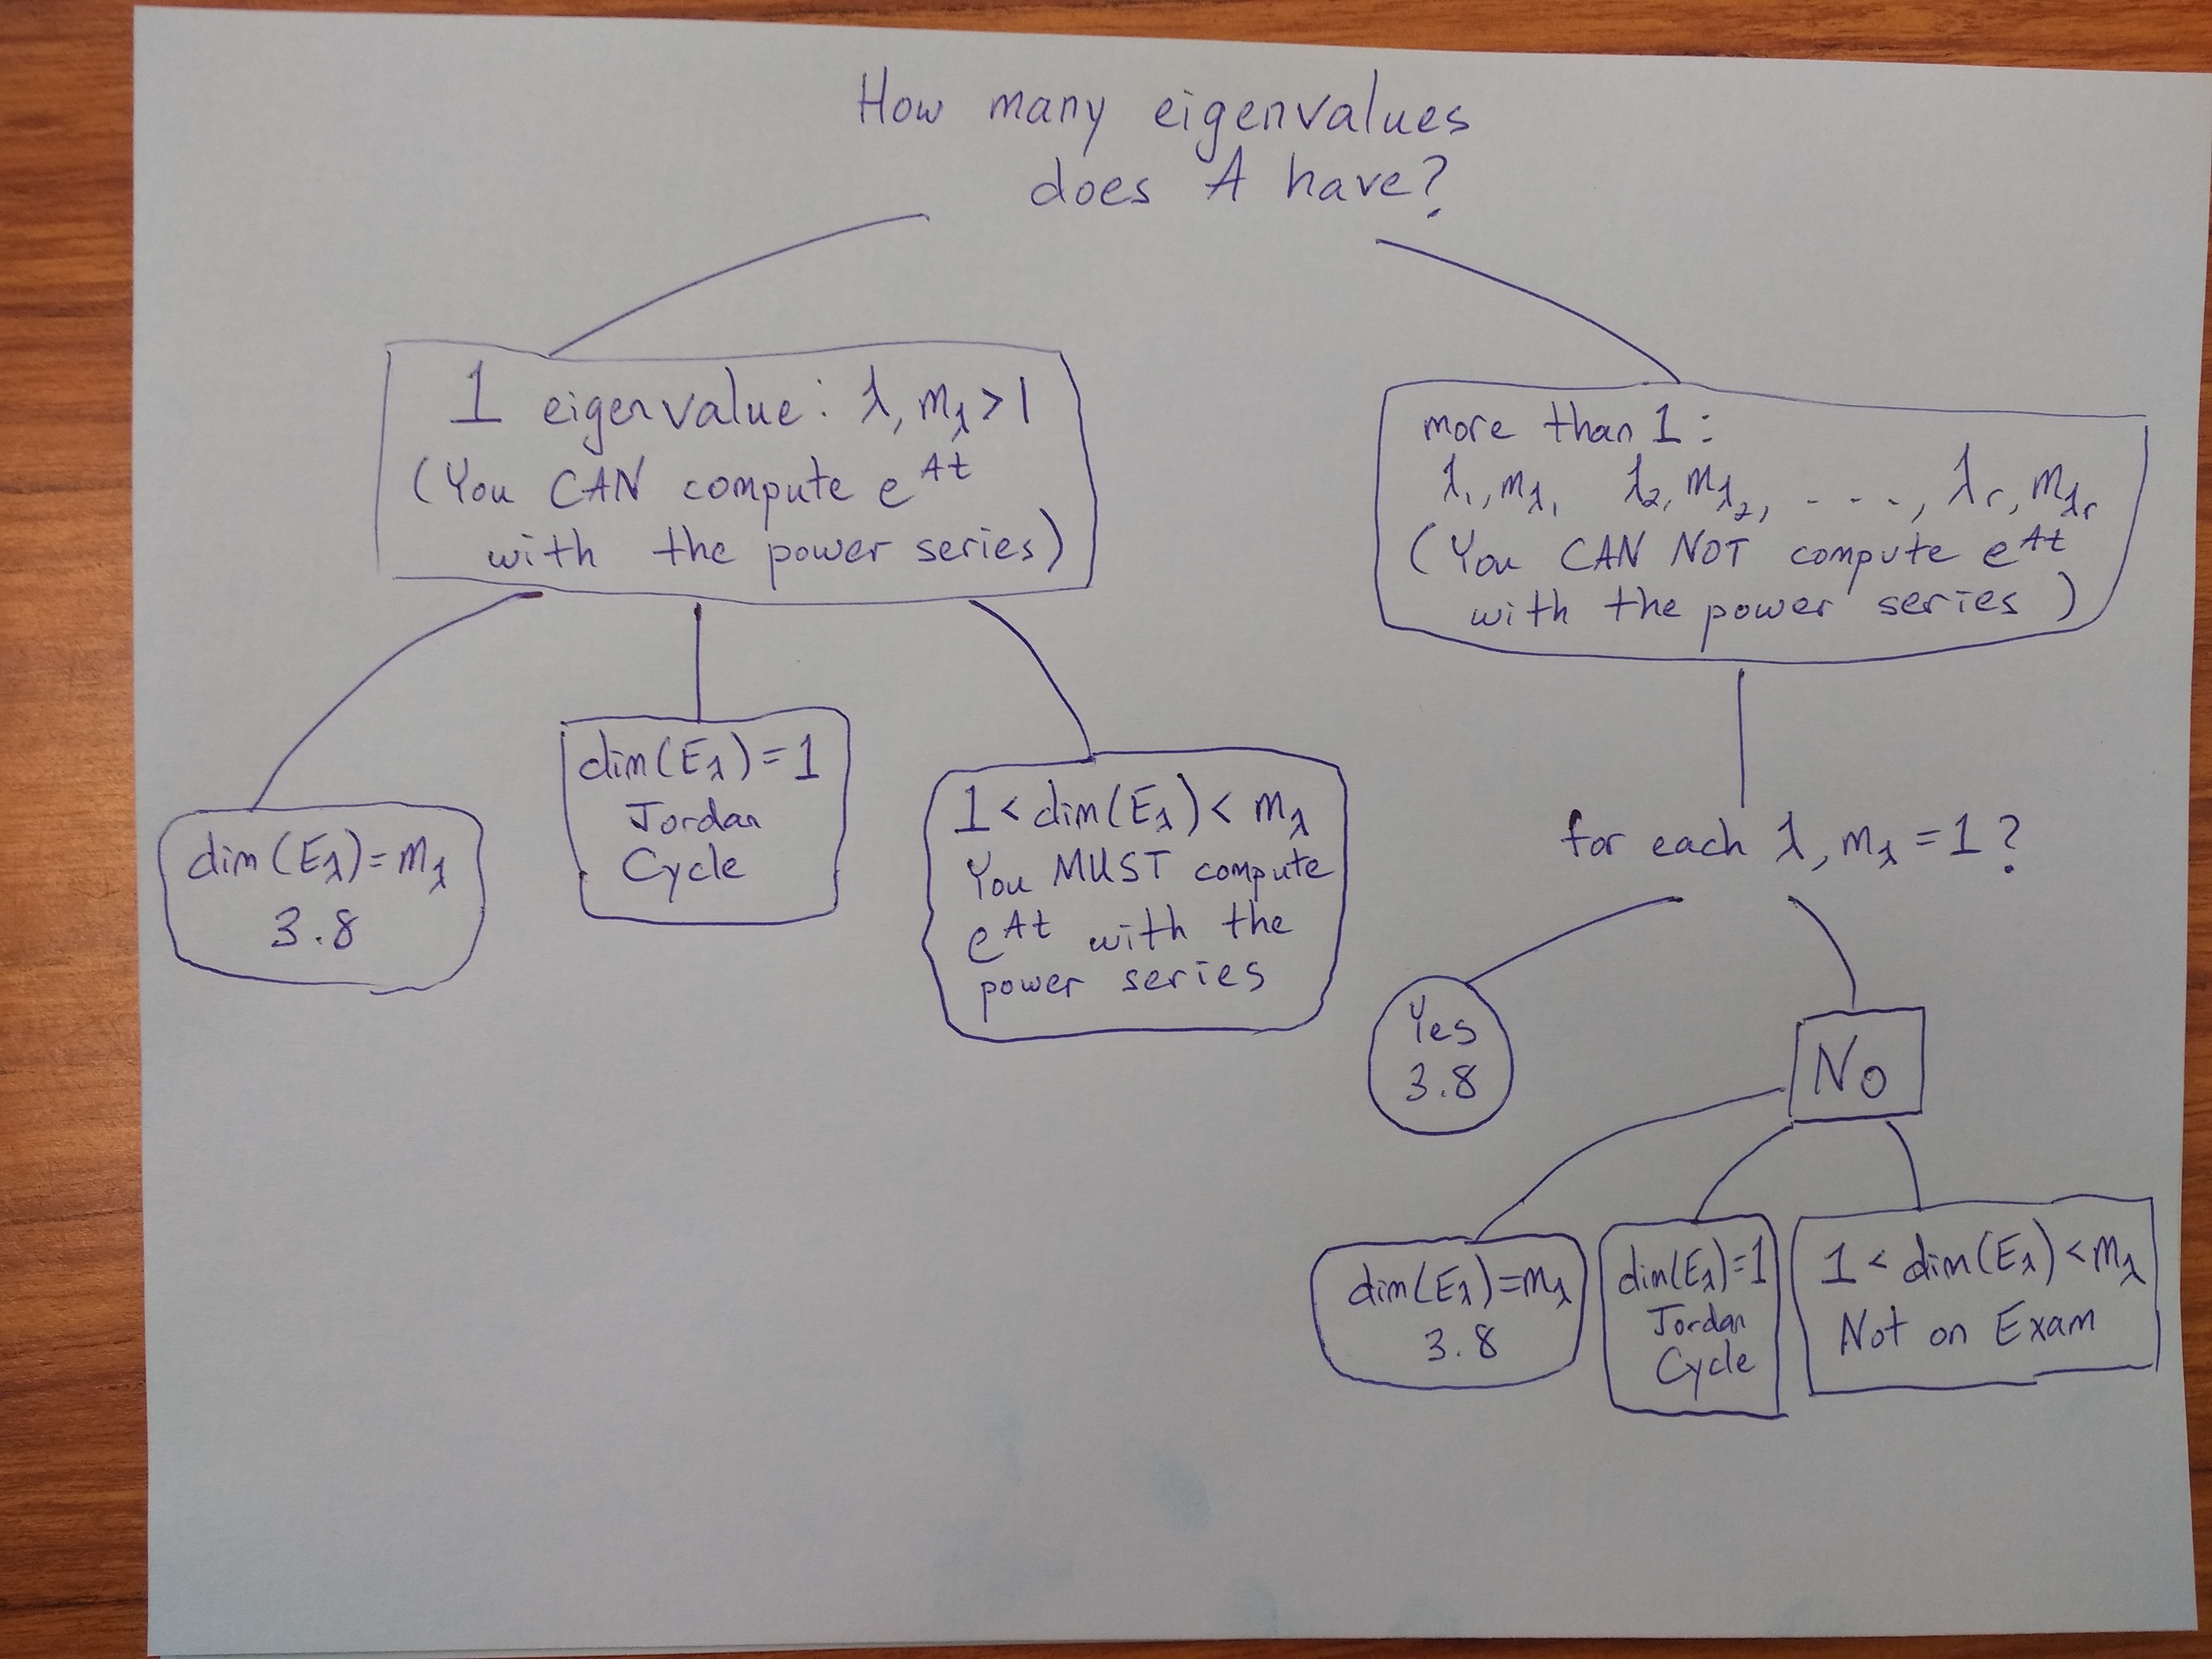 How many eigenvalues
does A have?
1 eigenvalue: λ, m_λ > 1
(You CAN compute e^{At}
with the power series)
more than 1:
λ₁, m_{λ₁} λ₂, m_{λ₂}, ...., λ_r, m_{λ_r}
(You CAN NOT compute e^{At}
with the power series)
dim(E_λ) = m_λ
3.8
dim(E_λ) = 1
Jordan
Cycle
1 < dim(E_λ) < m_λ
You MUST compute
e^{At} with the
power series
for each λ, m_λ = 1?
Yes
3.8
No
dim(E_λ) = m_λ
3.8
dim(E_λ) = 1
Jordan
Cycle
1 < dim(E_λ) < m_λ
Not on Exam